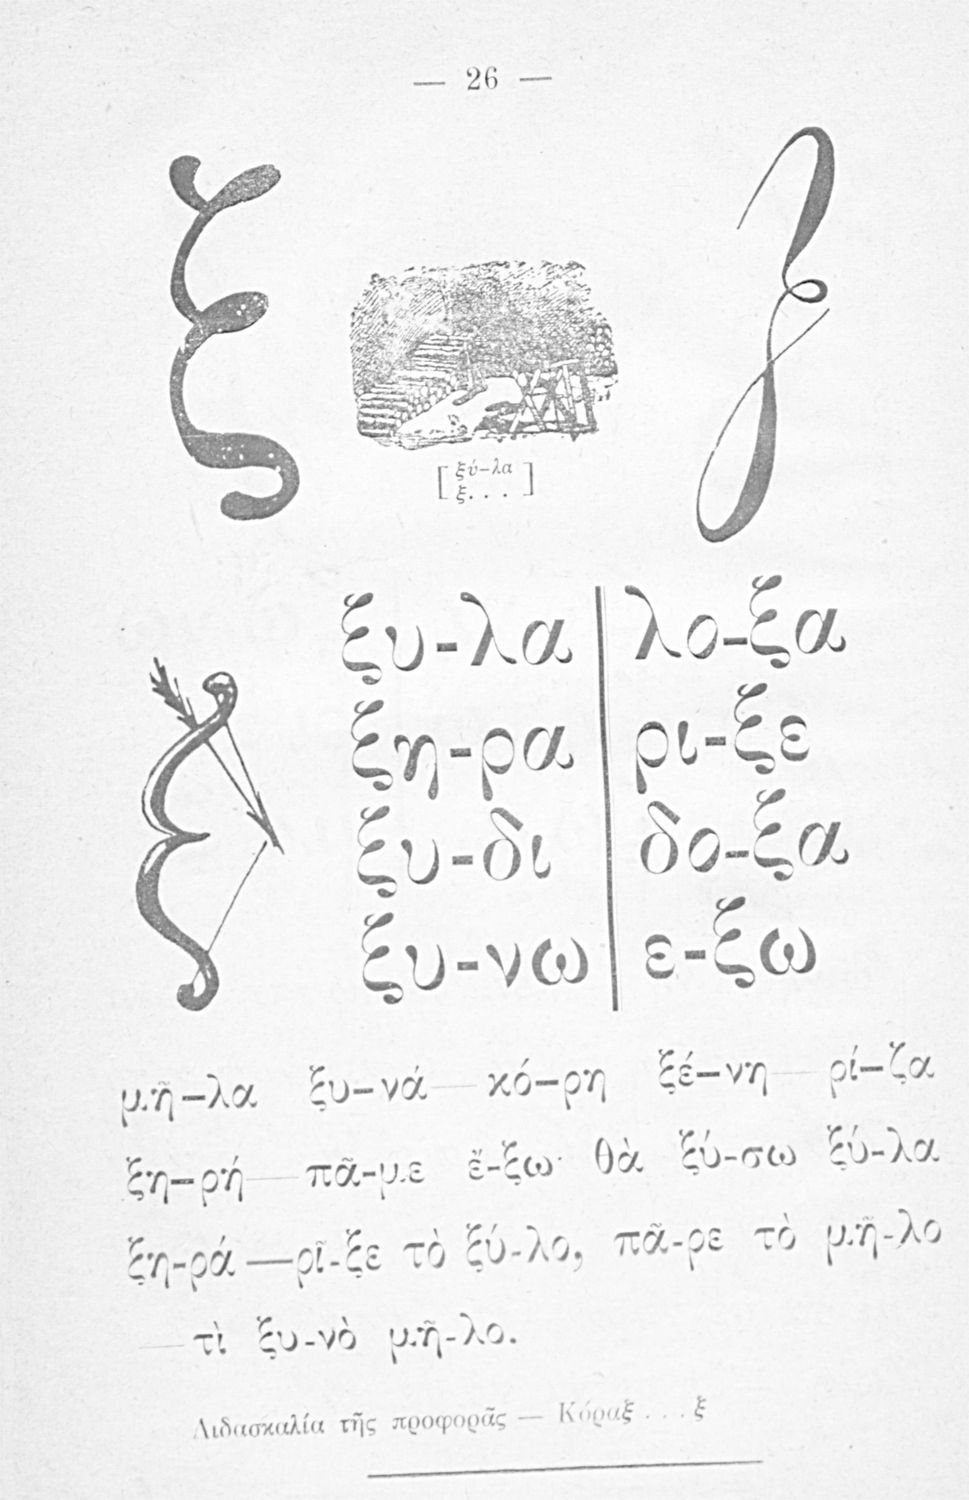 — 26 —
ξ
[ ξύ–λα
ξ. . . ]
ξυ-λα λο-ξα
ξη-ρα ρι-ξε
ξυ-δι δο-ξα
ξυ-νω ε-ξω
μῆ–λα ξυ–νά — κό–ρη ξέ–νη — ρί–ζα
ξη–ρή — πᾶ-με ἔ-ξω· θὰ ξύ-σω ξύ-λα
ξη-ρά — ρῖ-ξε τὸ ξύ-λο, πᾶ-ρε τὸ μῆ-λο
— τὶ ξυ-νὸ μῆ-λο.
Διδασκαλία τῆς προφορᾶς — Κόραξ . . . ξ